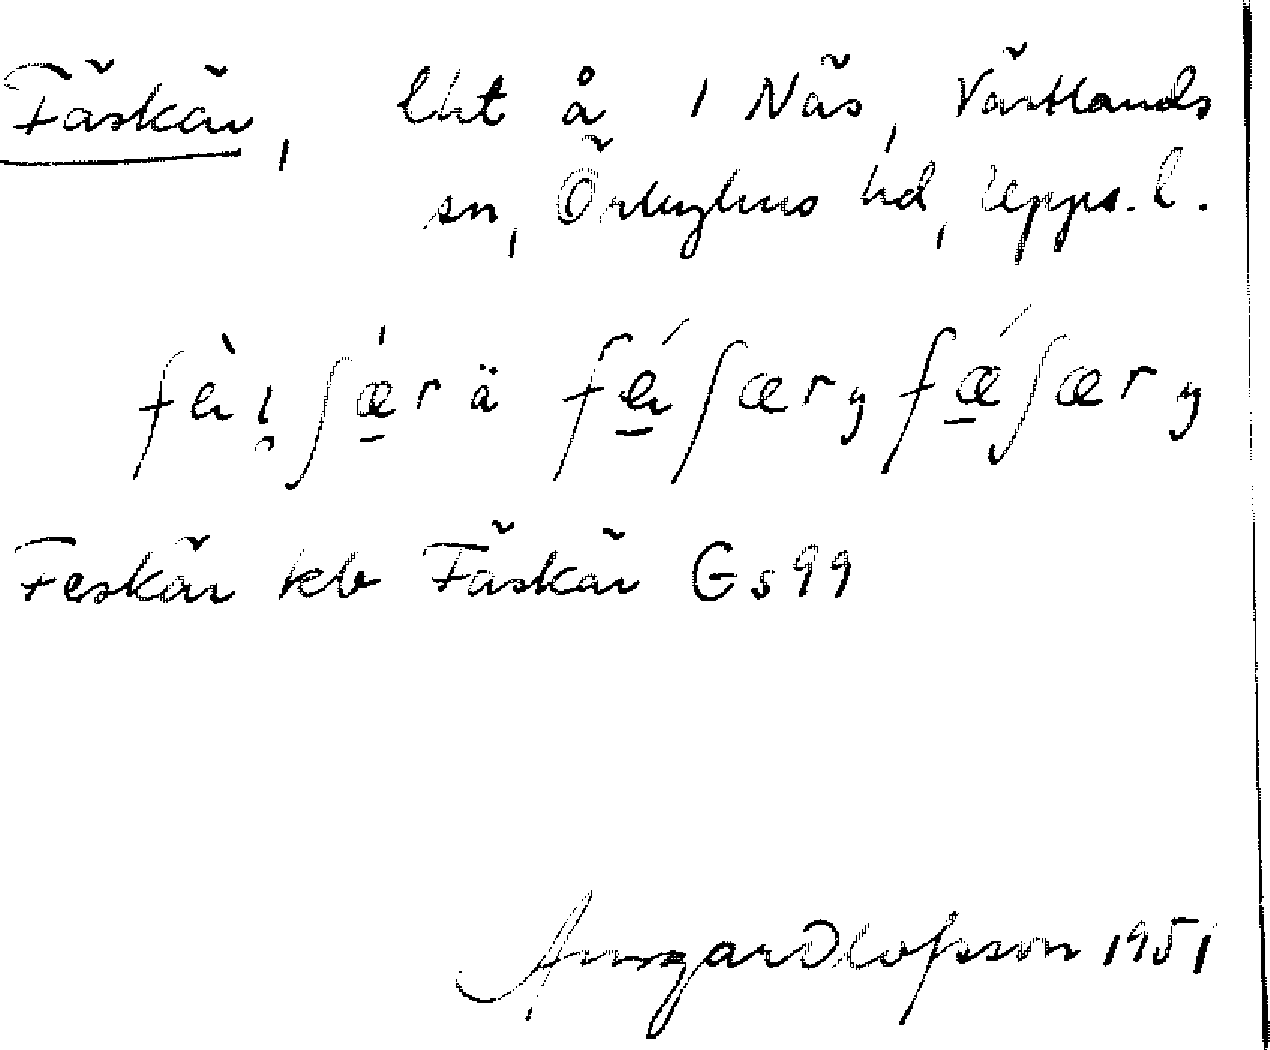 Fäskär, lht å 1 Näs, Västlands
sn, Örbyhus hd, Upps. l.
fèi̯ʃæ̀r ä féiʃær, fǽʃær,
Feskär kb Fäskär Gs 99
Ansgar Olofsson 1951